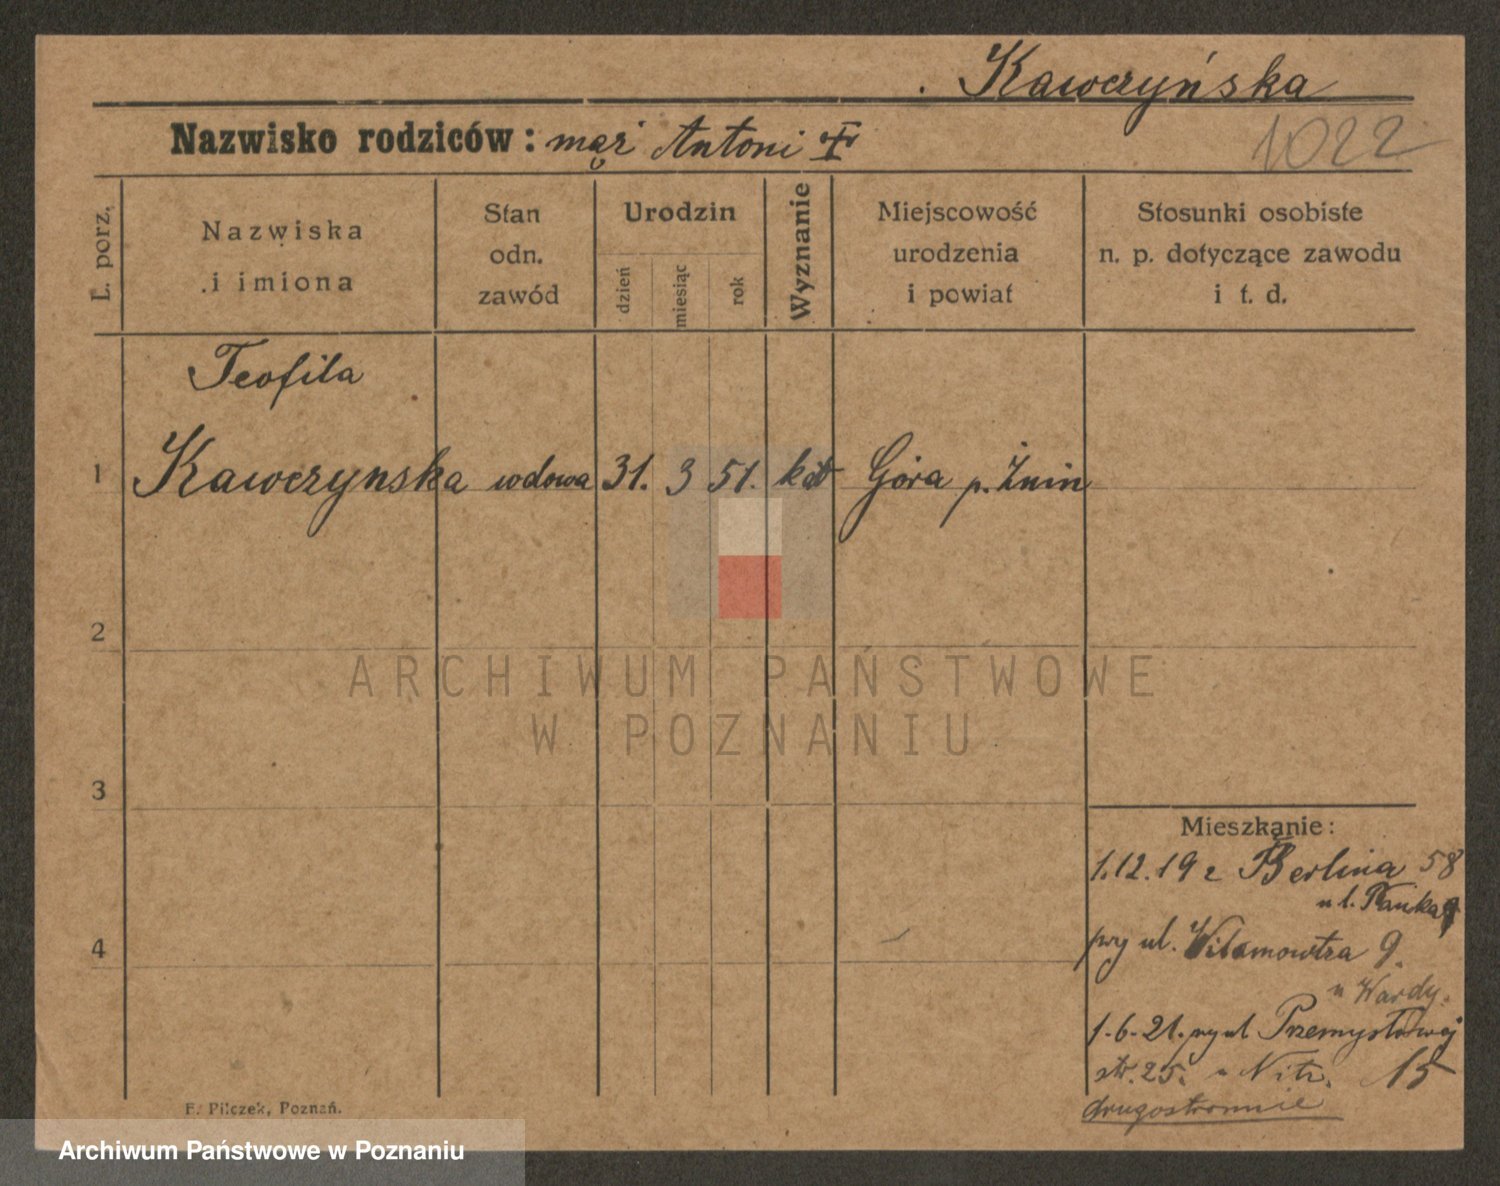 Kawczyńska
Nazwisko rodziców: mąż Antoni
1022
L. porz.
Nazwiska
i imiona
Stan
odn.
zawód
Urodzin
dzień
miesiąc
rok
Wyznanie
Miejscowość
urodzenia
i powiat
Stosunki osobiste
n. p. dotyczące zawodu
i t. d.
Teofila
1 Kawczynska wdowa 31. 3 51. kat Góra p. Żnin
2
ARCHIWUM PAŃSTWOWE
W POZNANIU
3
Mieszkanie:
1.12.19 z Berlina 58
4
przy ul. 9.
u Wardy.
1.6.21. przy ul Przemysłowej
str. 25. u Nitz. 15
drugostronnie
F. Pilczek, Poznań.
Archiwum Państwowe w Poznaniu